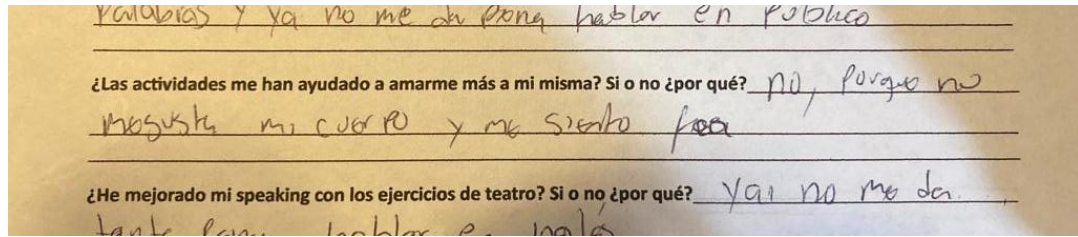 palabras y ya no me da pena hablar en publico
¿Las actividades me han ayudado a amarme más a mi misma? Si o no ¿por qué? no, porque no
megusta mi cuerpo y me siento fea
¿He mejorado mi speaking con los ejercicios de teatro? Si o no ¿por qué? ya no me da
tanta pena hablar en ingles